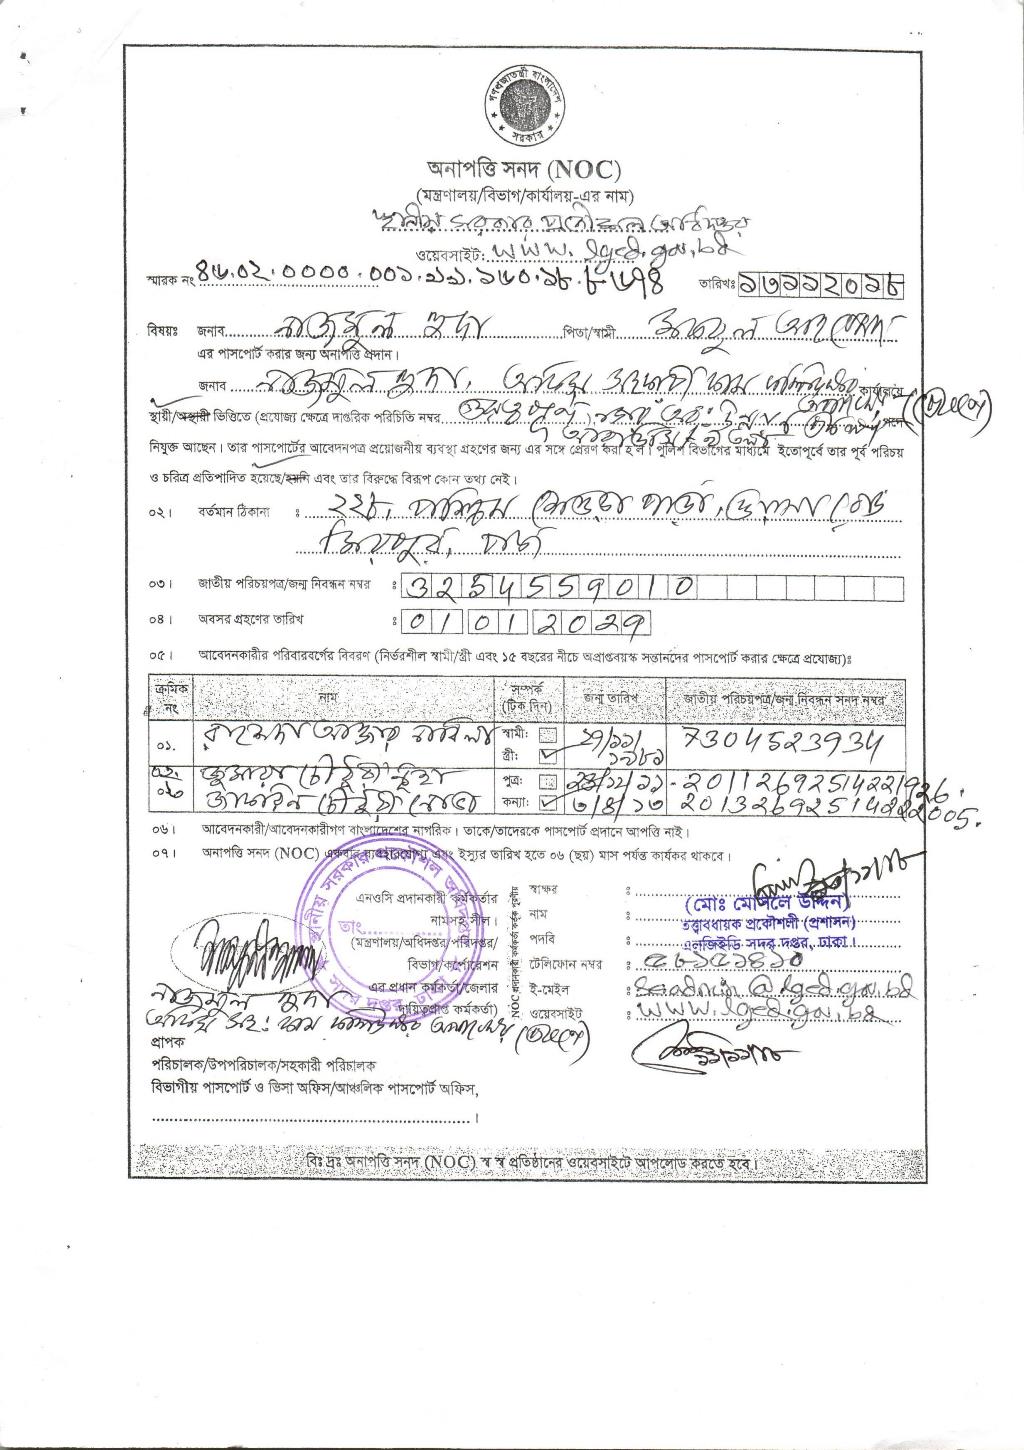 গণপ্রজাতন্ত্রী বাংলাদেশ সরকার
অনাপত্তি সনদ (NOC)
(মন্ত্রণালয়/বিভাগ/কার্যালয়-এর নাম)
স্থানীয় সরকার প্রকৌশল অধিদপ্তর
ওয়েবসাইট: www.lged.gov.bd
স্মারক নং ৪৬.০২.০০০০.০০১.১১.১৬০.১৮. তারিখঃ ১৩১১২০১৮
বিষয়ঃ জনাব নাজমুল হুদা পিতা/স্বামী
এর পাসপোর্ট করার জন্য অনাপত্তি প্রদান।
জনাব নাজমুল হুদা, অফিস সহকারী কার্যালয়ে
স্থায়ী/অস্থায়ী ভিত্তিতে (প্রযোজ্য ক্ষেত্রে দাপ্তরিক পরিচিতি নম্বর পদে
নিযুক্ত আছেন। তার পাসপোর্টের আবেদনপত্র প্রয়োজনীয় ব্যবস্থা গ্রহণের জন্য এর সঙ্গে প্রেরণ করা হ'ল। পুলিশ বিভাগের মাধ্যমে ইতোপূর্বে তার পূর্ব পরিচয়
ও চরিত্র প্রতিপাদিত হয়েছে/হয়নি এবং তার বিরুদ্ধে বিরূপ কোন তথ্য নেই।
০২। বর্তমান ঠিকানা : ২২৮, পশ্চিম শেওড়া পাড়া, রোড
মিরপুর, ঢাকা
০৩। জাতীয় পরিচয়পত্র/জন্ম নিবন্ধন নম্বর : 3254559010
০৪। অবসর গ্রহণের তারিখ : 01012029
০৫। আবেদনকারীর পরিবারবর্গের বিবরণ (নির্ভরশীল স্বামী/স্ত্রী এবং ১৫ বছরের নীচে অপ্রাপ্তবয়স্ক সন্তানদের পাসপোর্ট করার ক্ষেত্রে প্রযোজ্য)ঃ
ক্রমিক নং নাম সম্পর্ক (টিক দিন) জন্ম তারিখ জাতীয় পরিচয়পত্র/জন্ম নিবন্ধন সনদ নম্বর
০১. স্বামী: 7304523934
স্ত্রী: ✓
০২. চৌধুরী পুত্র: 20112692514221926.
০৩ চৌধুরী কন্যা: ✓ ৩/৪/১৩ 20132692514222005.
০৬। আবেদনকারী/আবেদনকারীগণ বাংলাদেশের নাগরিক। তাকে/তাদেরকে পাসপোর্ট প্রদানে আপত্তি নাই।
০৭। অনাপত্তি সনদ (NOC) একবার ব্যবহারযোগ্য এবং ইস্যুর তারিখ হতে ০৬ (ছয়) মাস পর্যন্ত কার্যকর থাকবে।
এনওসি প্রদানকারী কর্মকর্তার
নামসহ সীল।
(মন্ত্রণালয়/অধিদপ্তর/পরিদপ্তর/
বিভাগ/কর্পোরেশন
এর প্রধান কর্মকর্তা/জেলার
দায়িত্বপ্রাপ্ত কর্মকর্তা)
স্থানীয় সরকার প্রকৌশল অধিদপ্তর
তাং
সদর দপ্তর, ঢাকা
NOC প্রদানকারী কর্মকর্তা কর্তৃক পূরণীয়
স্বাক্ষর :
নাম : (মোঃ মোসলে উদ্দিন)
তত্ত্বাবধায়ক প্রকৌশলী (প্রশাসন)
পদবি : এলজিইডি সদর দপ্তর, ঢাকা।
টেলিফোন নম্বর :
ই-মেইল : seadmin@lged.gov.bd
ওয়েবসাইট : www.lged.gov.bd
নাজমুল হুদা
প্রাপক
পরিচালক/উপপরিচালক/সহকারী পরিচালক
বিভাগীয় পাসপোর্ট ও ভিসা অফিস/আঞ্চলিক পাসপোর্ট অফিস,
।
বিঃ দ্রঃ অনাপত্তি সনদ (NOC) স্ব স্ব প্রতিষ্ঠানের ওয়েবসাইটে আপলোড করতে হবে।